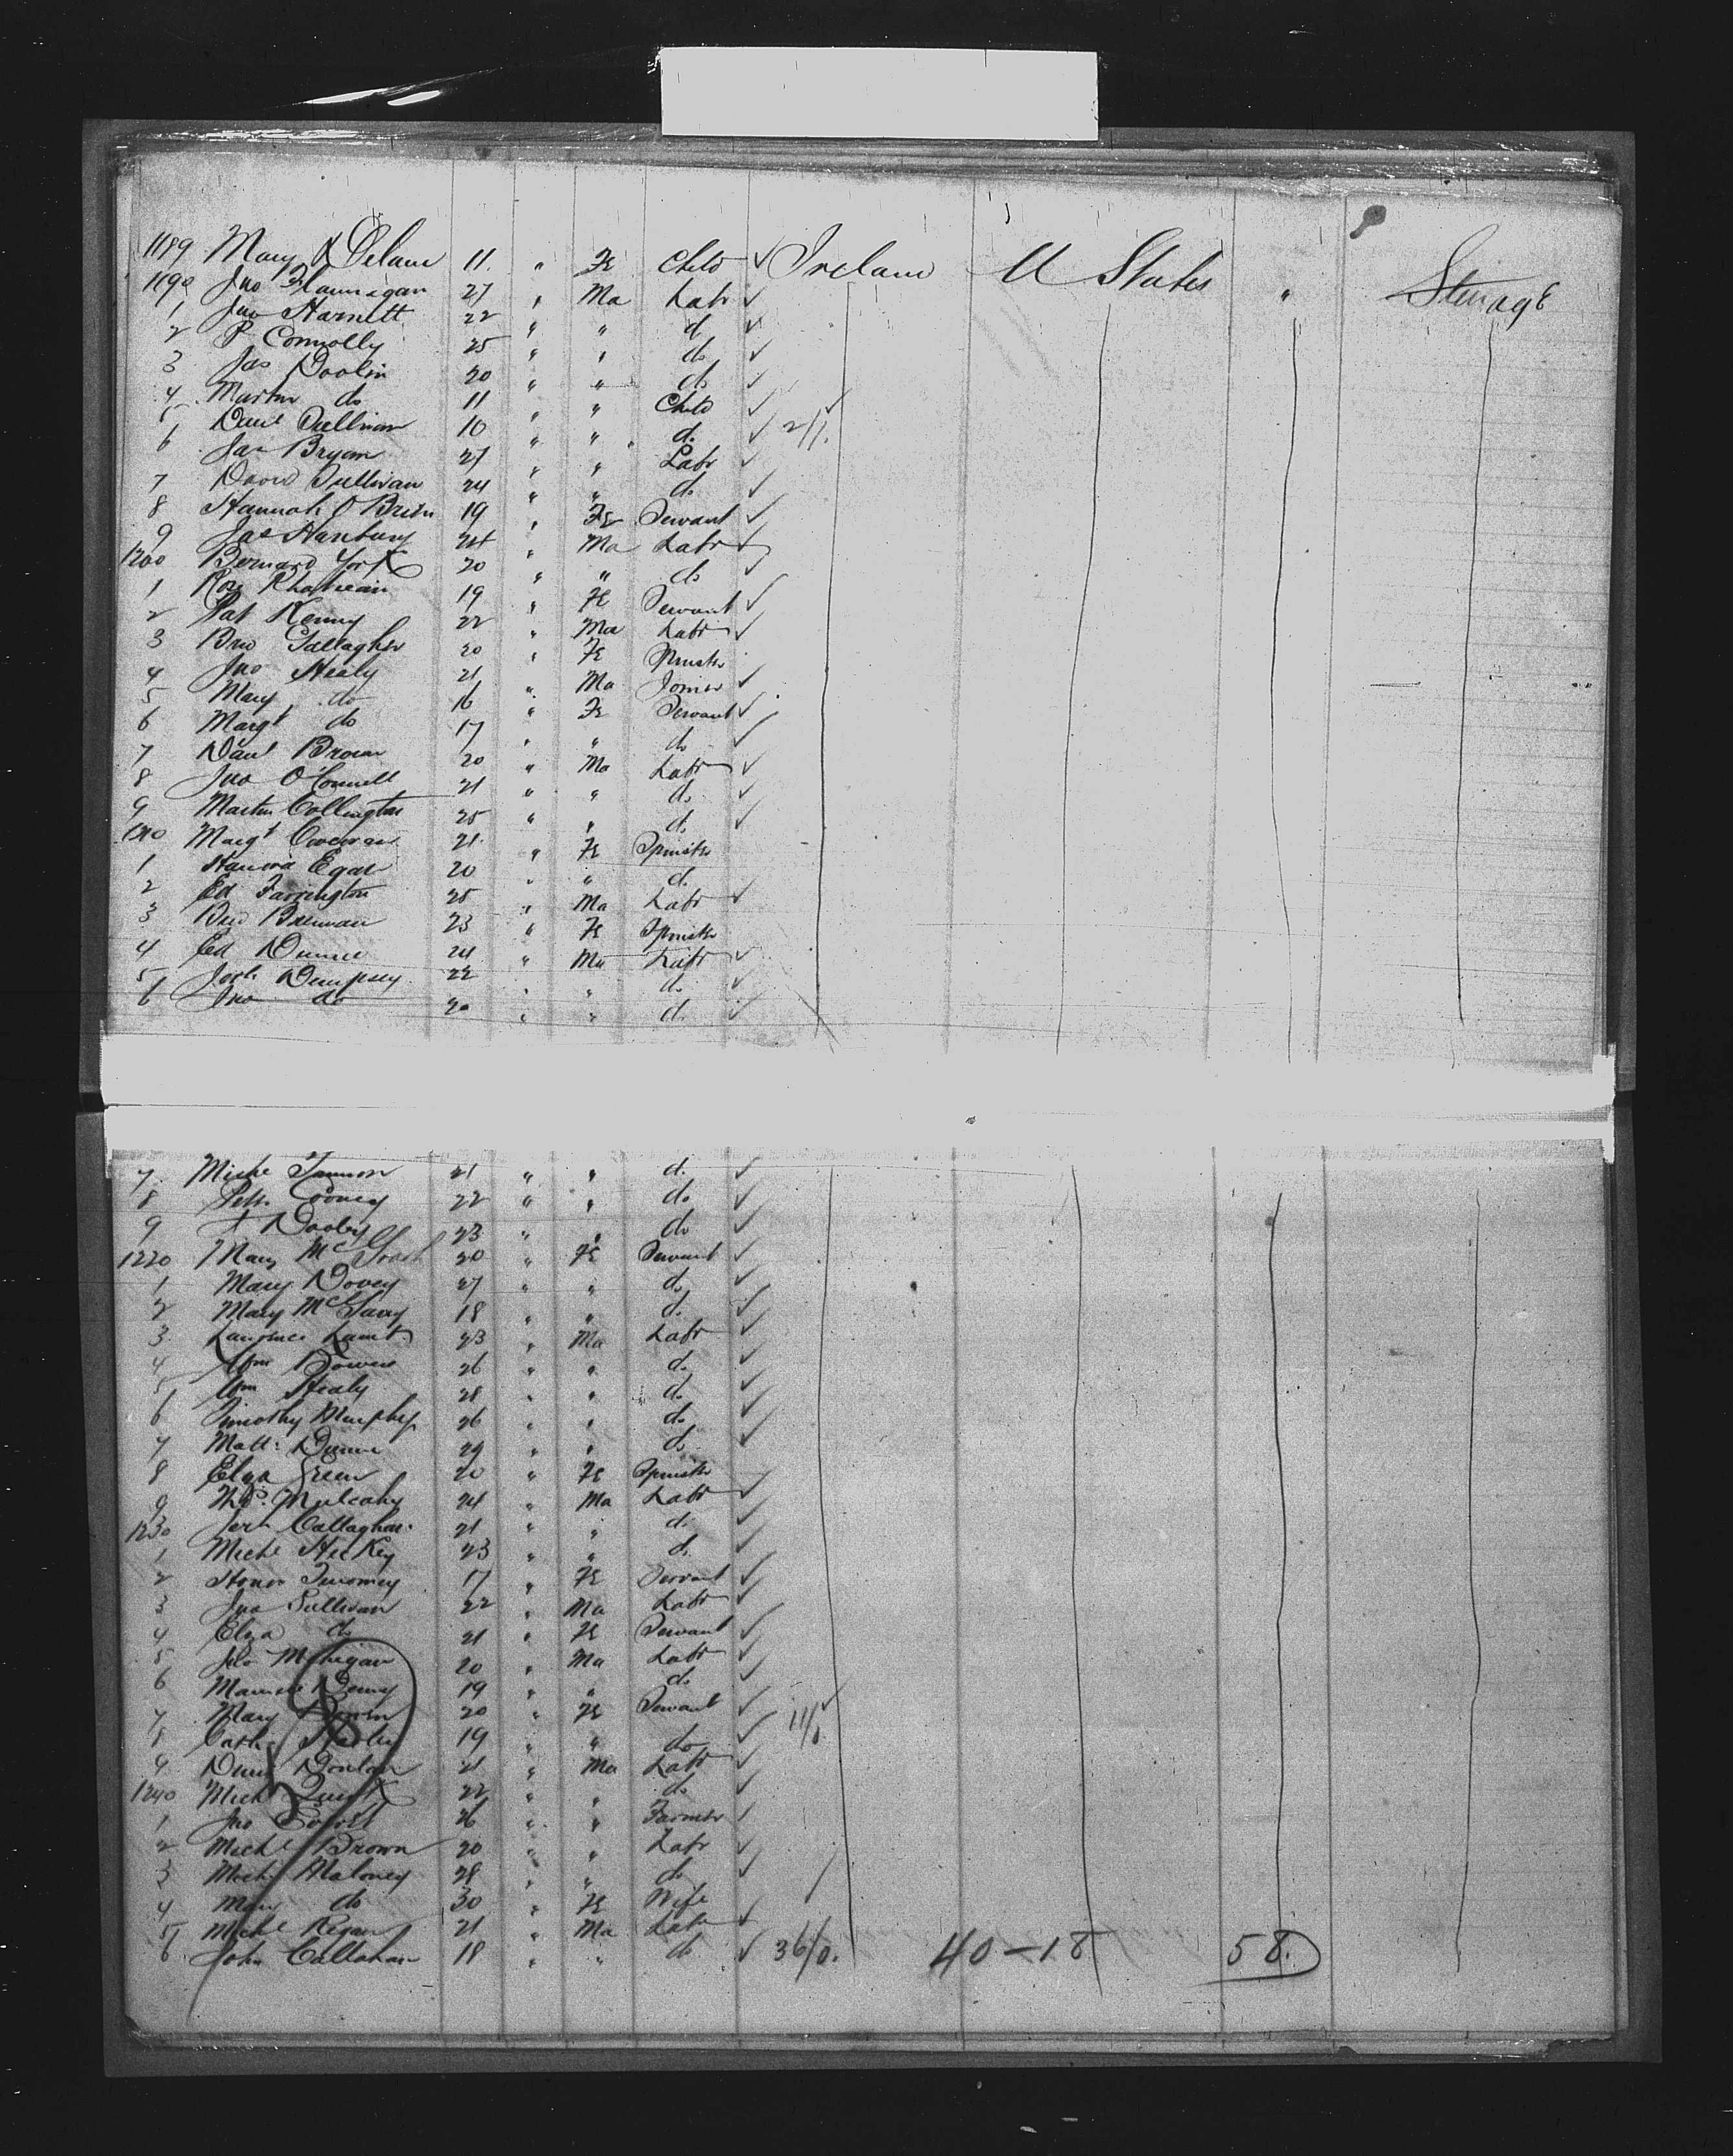 1189 Mary Delane 11. " Fe Child ✓ Ireland U States " Steerage
1190 Jno Flannagan 27 " Ma Labr ✓
1 Jno Harnett 22 " " d ✓
2 P Connolly 25 " " do ✓
3 Jas Doolin 20 " " do ✓
4 Martin do 11 " " Child ✓
5 Danl Sullivan 10 " " do ✓ 2/1.
6 Jas Bryan 27 " " Labr ✓
7 David Sullivan 24 " " do ✓
8 Hannah O'Brien 19 " Fe Servant ✓
9 Jas Hanbury 24 " Ma Labr ✓
1200 Bernard York 20 " " do ✓
1 19 " Fe Servant ✓
2 Pat Kenny 22 " Ma Labr ✓
3 Brid Gallagher 20 " Fe Spinster
4 Jno Healy 21 " Ma Joiner ✓
5 Mary do 16 " Fe Servant ✓
6 Margt do 17 " " do ✓
7 Danl Brown 20 " Ma Labr ✓
8 Jno O'Connell 21 " " do ✓
9 Martin Collington 25 " " do ✓
1210 Margt Corcoran 21 " Fe Spinster
1 Hanora Egan 20 " " d.
2 Ed Farrington 25 " Ma Labr ✓
3 Brid Brennan 23 " Fe Spinster
4 Ed Dunne 24 " Ma Labr ✓
5 Josh Dempsey 22 " " do ✓
6 Jno do 20 " " d. ✓
7 Michl 21 " " d. ✓
8 Cooney 22 " " do ✓
9 Dooley 23 " " do ✓
1220 Mary 20 " Fe Servant ✓
1 Mary Dovey 27 " " do ✓
2 Mary McGarry 18 " " d. ✓
3 Lawrence Lamb 23 " Ma Labr ✓
4 Wm Bowen 26 " " do ✓
5 Wm Healy 28 " " do ✓
6 Timothy Murphy 26 " " do ✓
7 Matt: Dunne 29 " " do ✓
8 Eliza Green 20 " Fe Spinster
9 Thos. Mulcahy 24 " Ma Labr ✓
1230 Jerh Callaghan 21 " " d. ✓
1 Michl Hickey 23 " " do ✓
2 Honor Twomey 17 " Fe Servant ✓
3 Jno Sullivan 22 " Ma Labr ✓
4 Eliza do 21 " Fe Servant ✓
5 Mehigan 20 " Ma Labr ✓
6 Maurice Denny 19 " " do ✓
7 Mary 20 " Fe Servant ✓ 11/
8 Cath 19 " " do ✓
9 Denis Donlan 21 " Ma Labr ✓
1240 Michl Quirk 22 " " do ✓
1 Jno 26 " " Farmer /
2 Michl Brown 20 " " Labr ✓
3 Michl Maloney 28 " " do ✓
4 Mary do 30 " Fe Wife
5 Michl Regan 21 " Ma Labr ✓
6 John Callahan 18 " " do ✓ 36/0. 40-18 58.